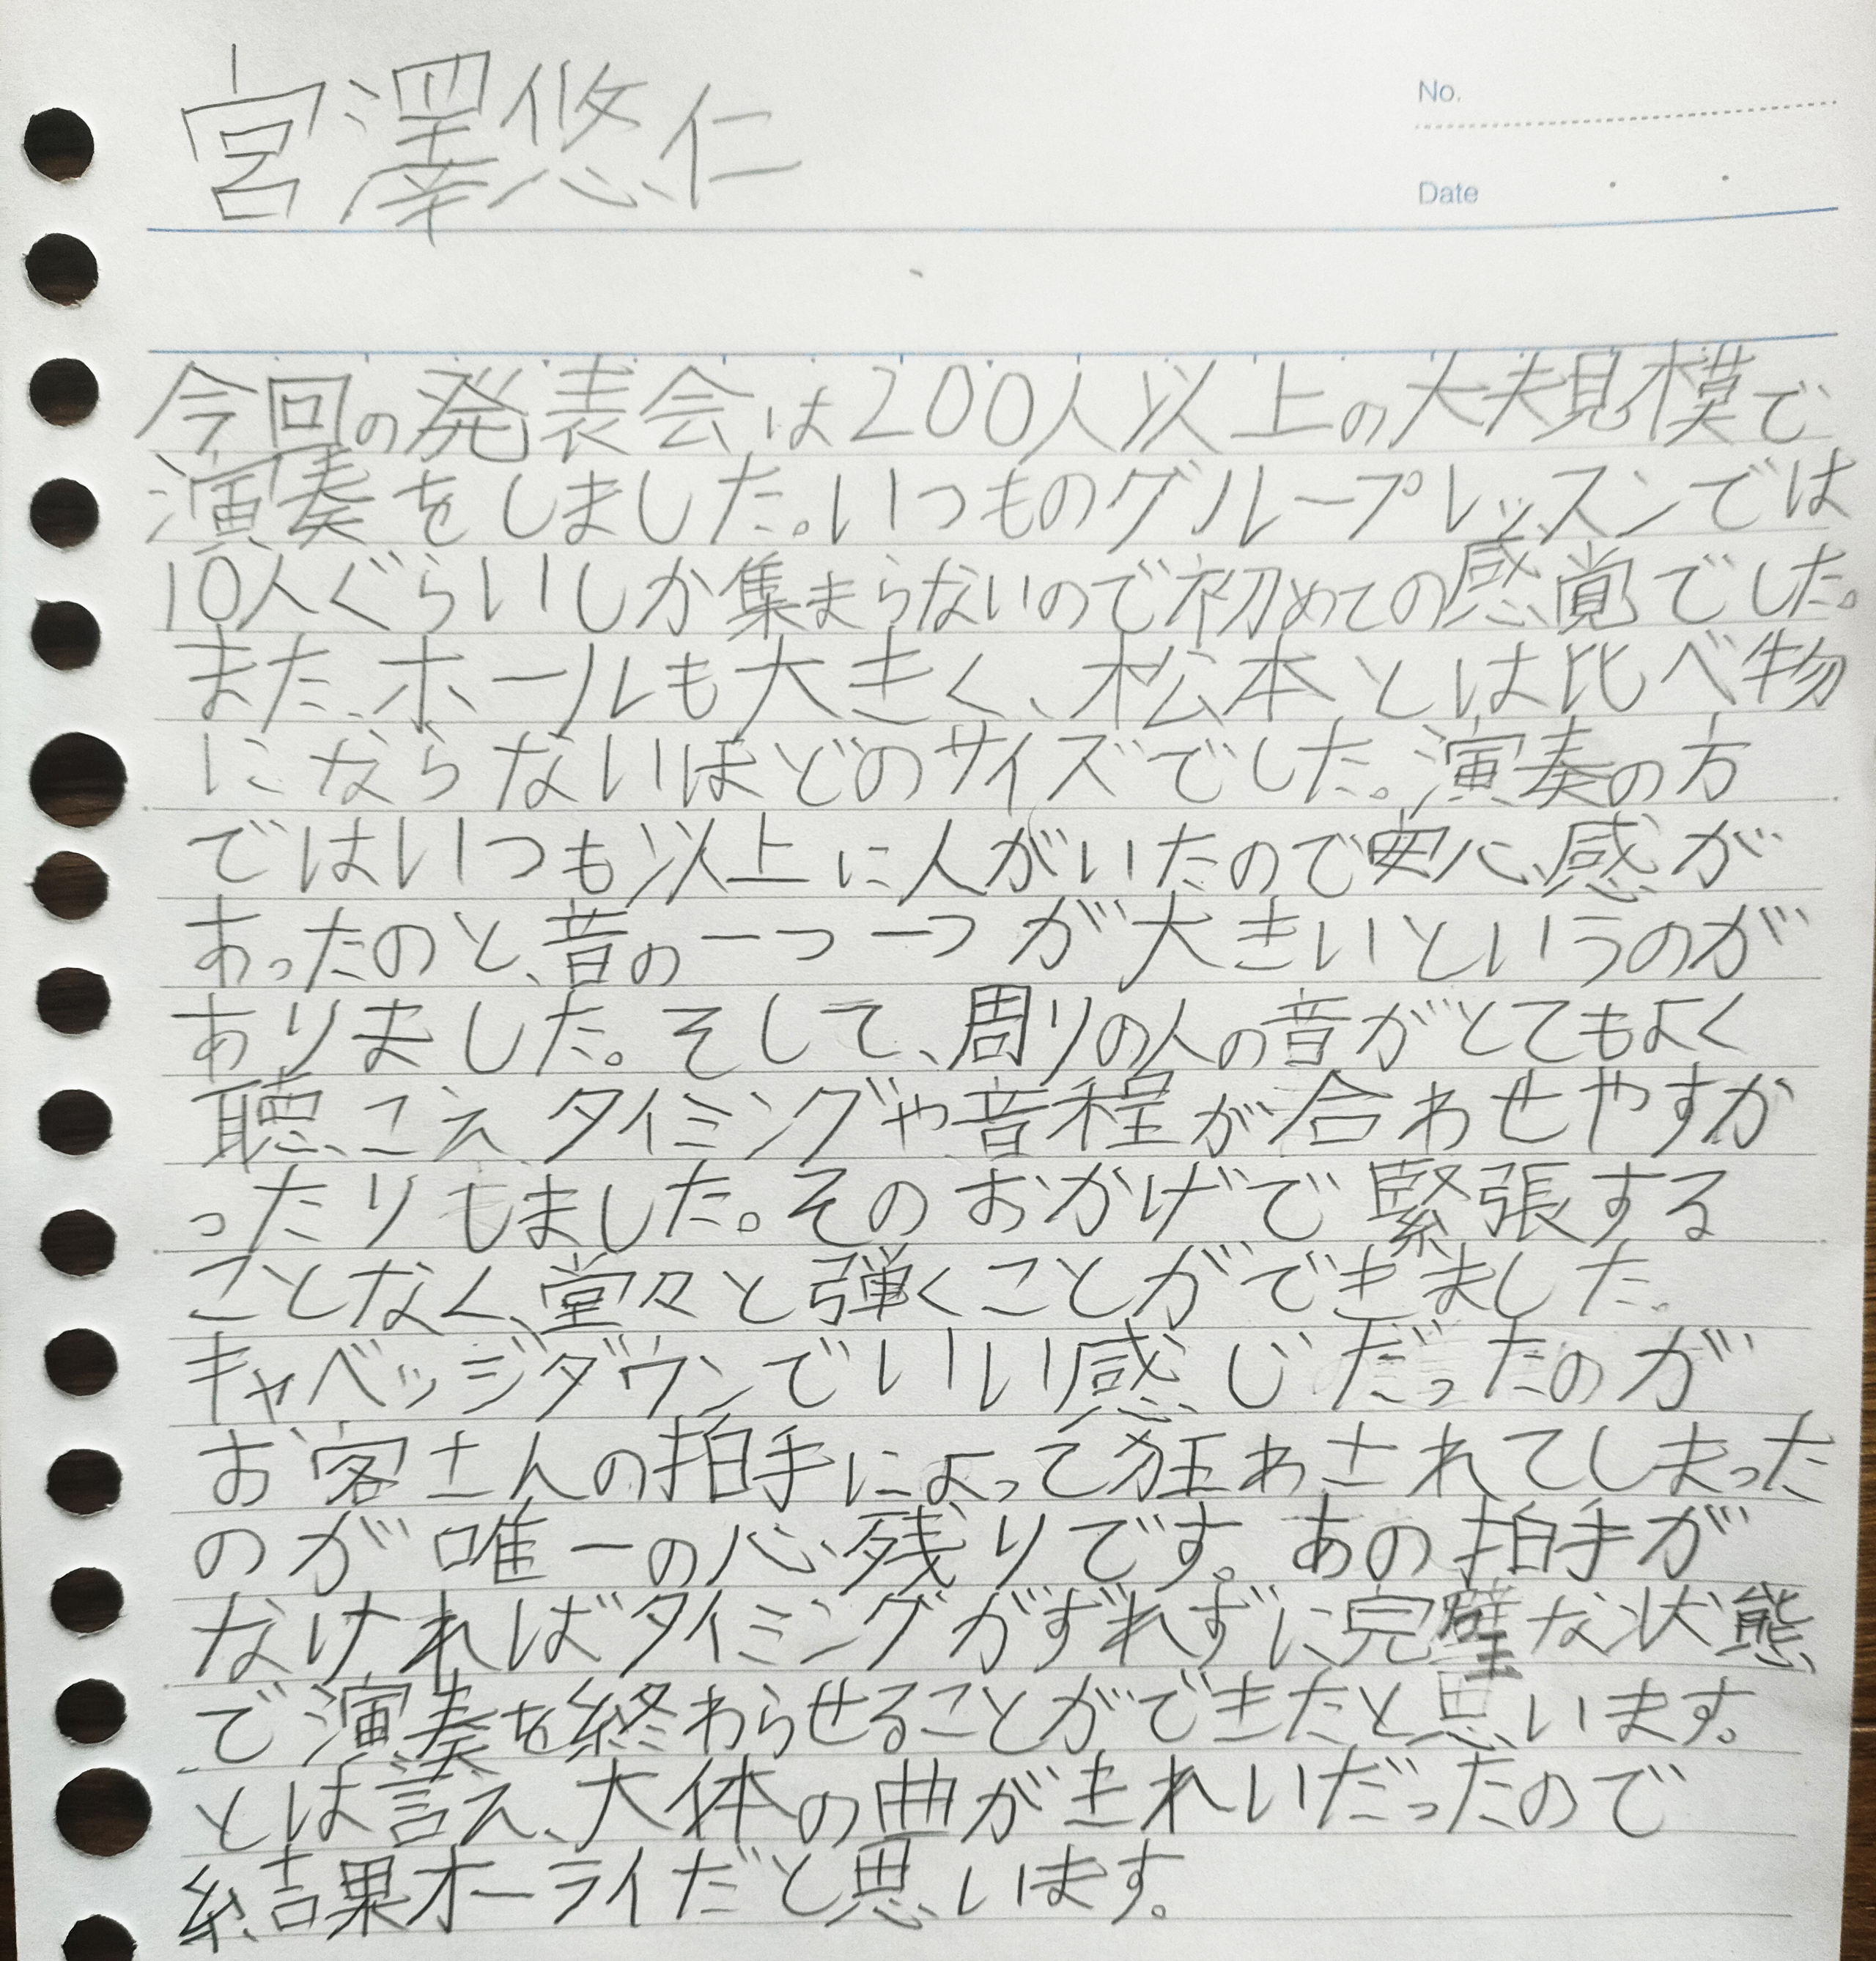 宮澤悠仁
No.
Date
今回の発表会は200人以上の大規模で
演奏をしました。いつものグループレッスンでは
10人ぐらいしか集まらないので初めての感覚でした。
また、ホールも大きく、松本とは比べ物
にならないほどのサイズでした。演奏の方
ではいつも以上に人がいたので安心感が
あったのと、音の一つ一つが大きいというのが
ありました。そして、周りの人の音がとてもよく
聴こえ、タイミングや音程が合わせやすか
ったりしました。そのおかげで緊張する
ことなく、堂々と弾くことができました。
キャベッジダウンでいい感じだったのが
お客さんの拍手によって狂わされてしまった
のが唯一の心残りです。あの拍手が
なければタイミングがずれずに完璧な状態
で演奏を終わらせることができたと思います。
とは言え、大体の曲がきれいだったので
結果オーライだと思います。